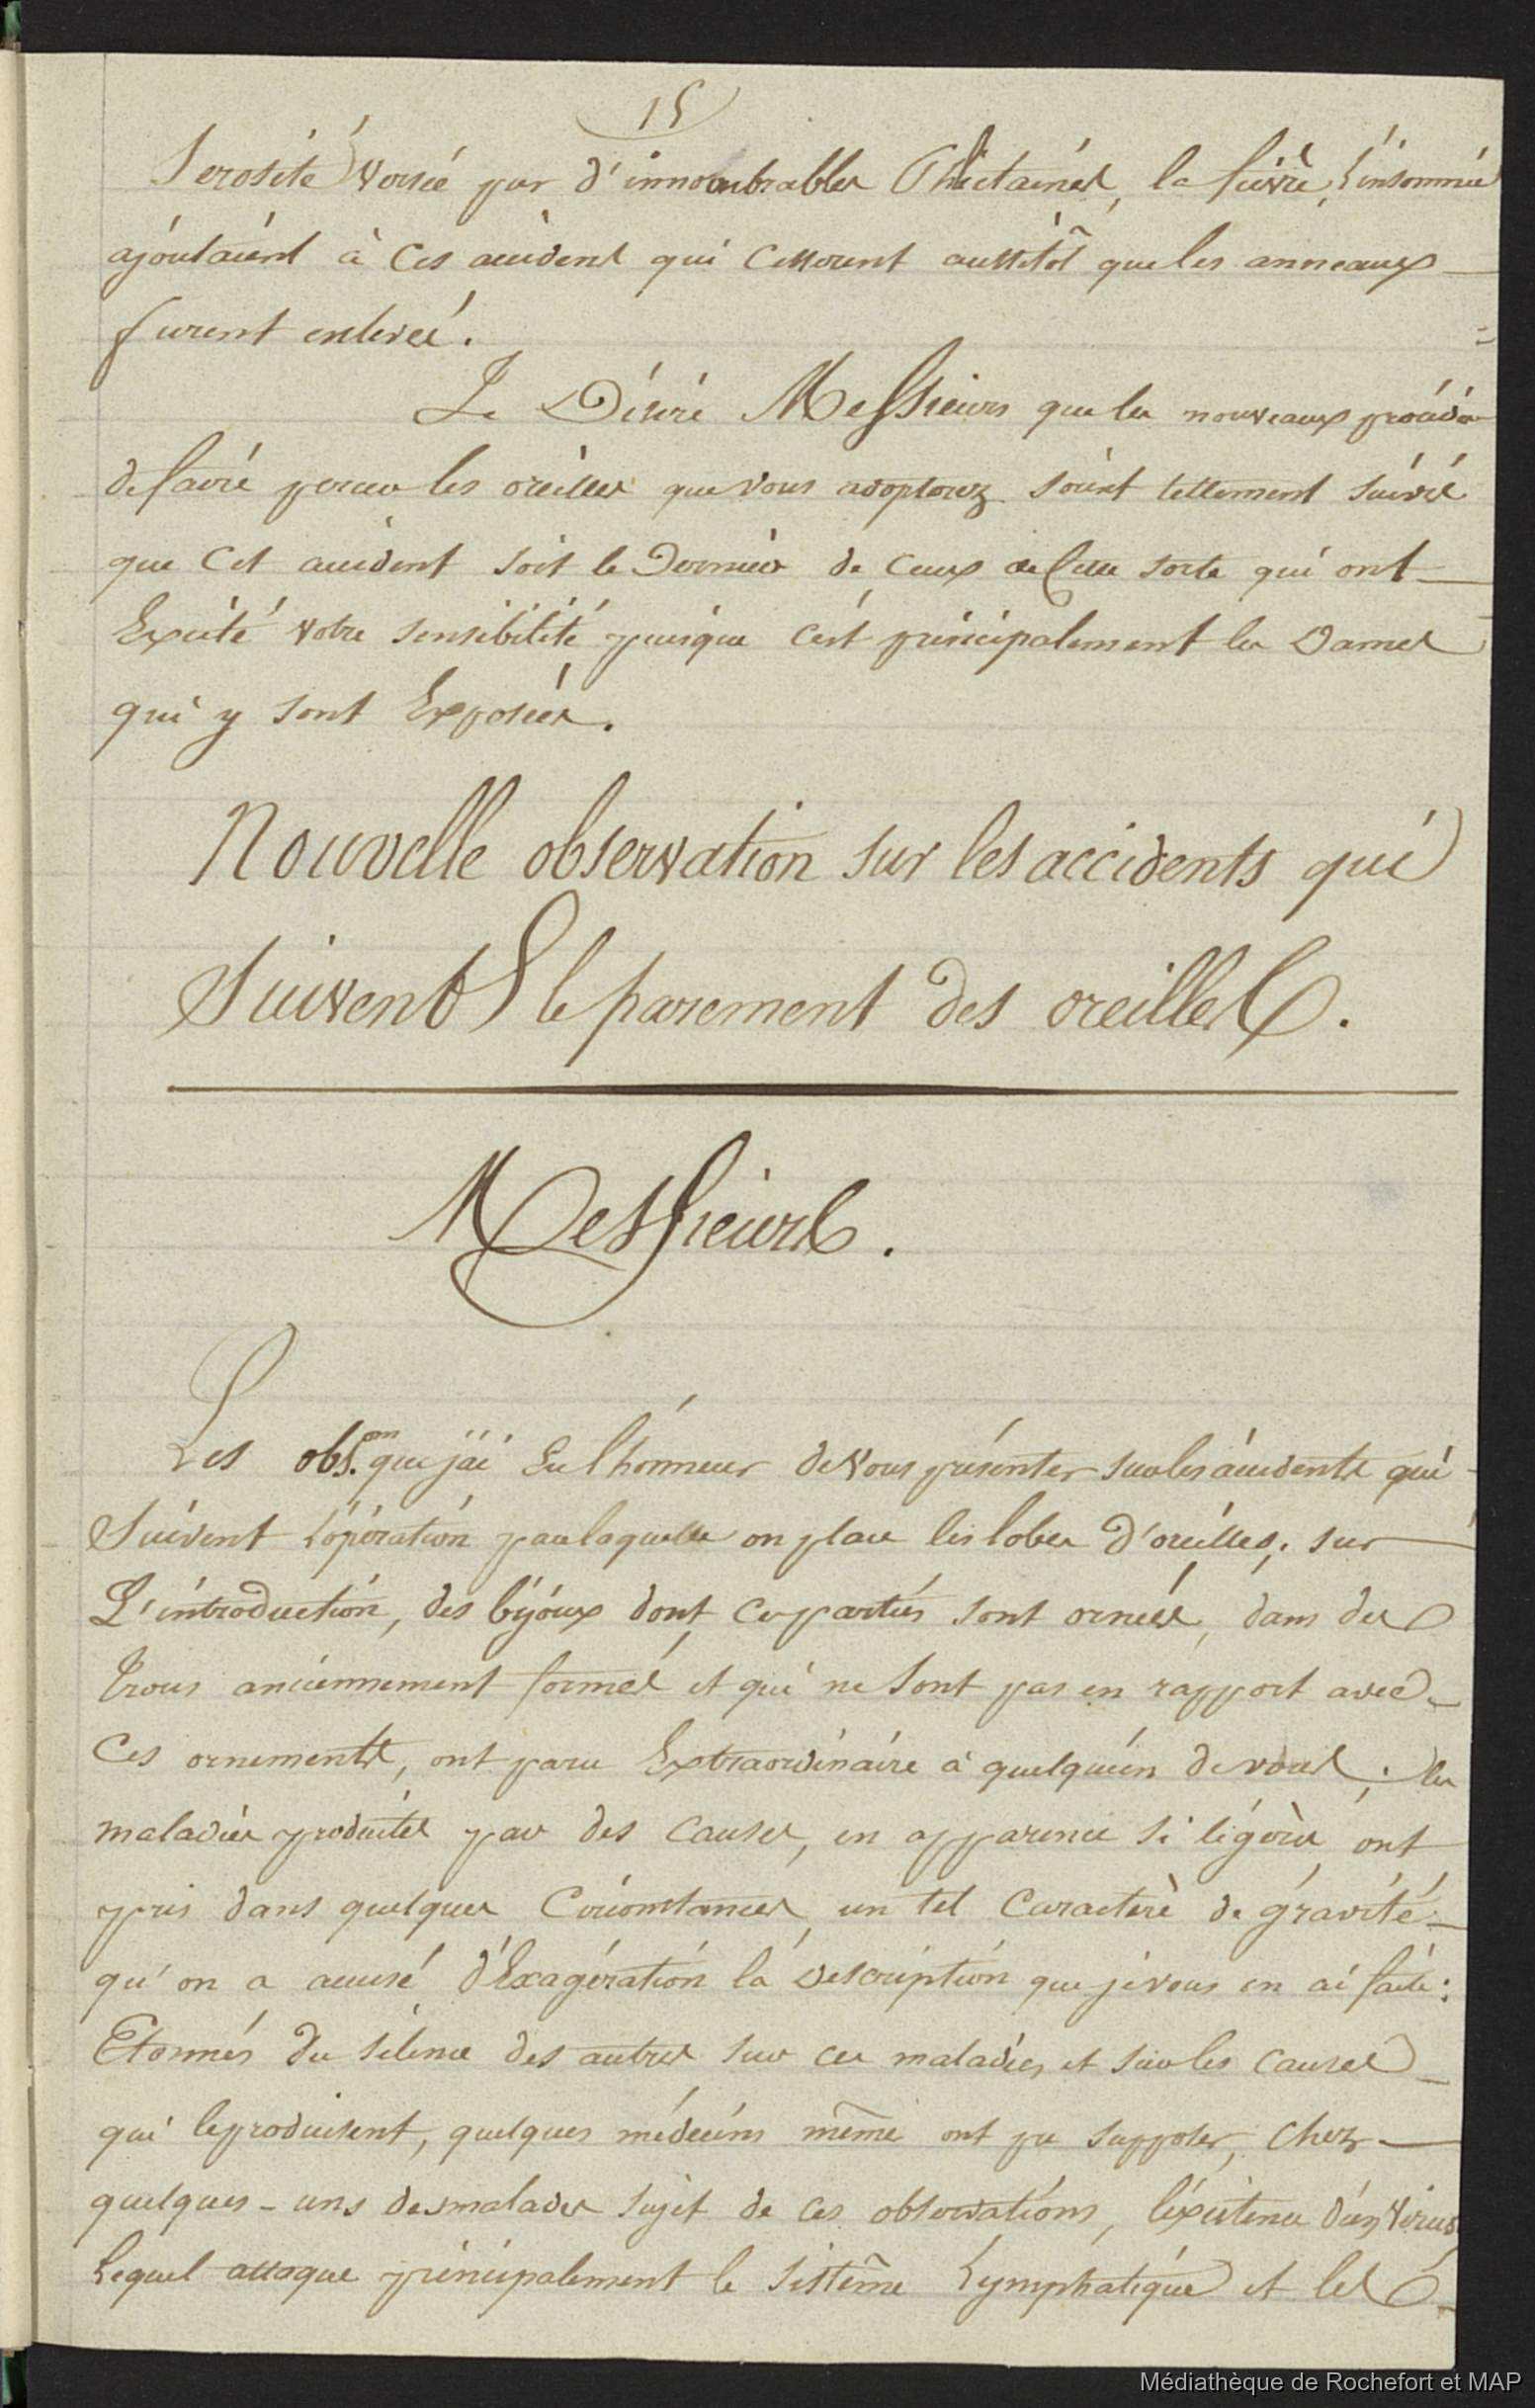 15
Serosité versée par d'innombrables Phlictaines, la fièvre, l'insomnie
ajoutaient à ces accidens qui cesserent aussitôt que les anneaux
furent enlevés.
Je Désire Messieurs que les nouveaux procédés
de faire percer les oreilles que vous adopterez soient tellement suivis
que cet accident soit le Dernier de ceux de cette sorte qui ont
Excité votre sensibilité puisque c'est principalement les Dames
qui y sont Exposées.
Nouvelle observation sur les accidents qui
suivent le parement des oreilles.
Messieurs.
Les obs.on que j'ai Eu l'honneur de vous présenter sur les accidents qui
Suivent L'opération par laquelle on place les lobes D'oreilles, sur
L'introduction, des bijoux dont ces parties sont ornées, dans des
trous anciennement formés et qui ne sont pas en rapport avec
Ces ornements, ont paru Extraordinaire à quelqu'un de vous; les
maladies produites par des causes, en apparence si légères, ont
pris dans quelques Circonstances, un tel Caractère de gravité
qu'on a accusé d'Exagération la Description que je vous en ai faite:
Etonnés du silence des autres sur ces maladies, et sur les causes
qui les produisent, quelques médecins même ont pu supposer, chez
quelques-uns des malades sujet de ces observations, l'existence d'un Virus
Lequel attaque principalement le sistême Lymphatique et les
Médiathèque de Rochefort et MAP